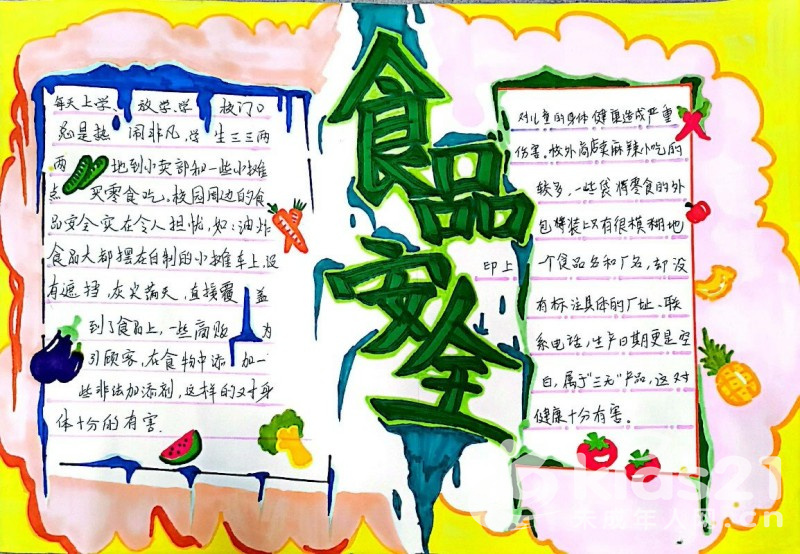 每天上学、放学,学校门口
总是热闹非凡,学生三三两
两地到小卖部和一些小摊
点买零食吃,校园周边的食
品安全实在令人担忧,如:油炸
食品大都摆在自制的小摊车上,没
有遮挡,灰尘满天,直接覆盖
到了食品上,一些商贩为
引顾客,在食物中添加一
些非法加添剂,这样的对身
体十分的有害.
食品安全
对儿童的身体健康造成严重
伤害,校外商店卖麻辣小吃的
较多,一些袋装零食的外
包装上又有很模糊地
印上一个食品名和厂名,却没
有标注具体的厂址、联
系电话,生产日期更是空
白,属于"三无"产品,这对
健康十分有害。
kids21
未成年人网.cn